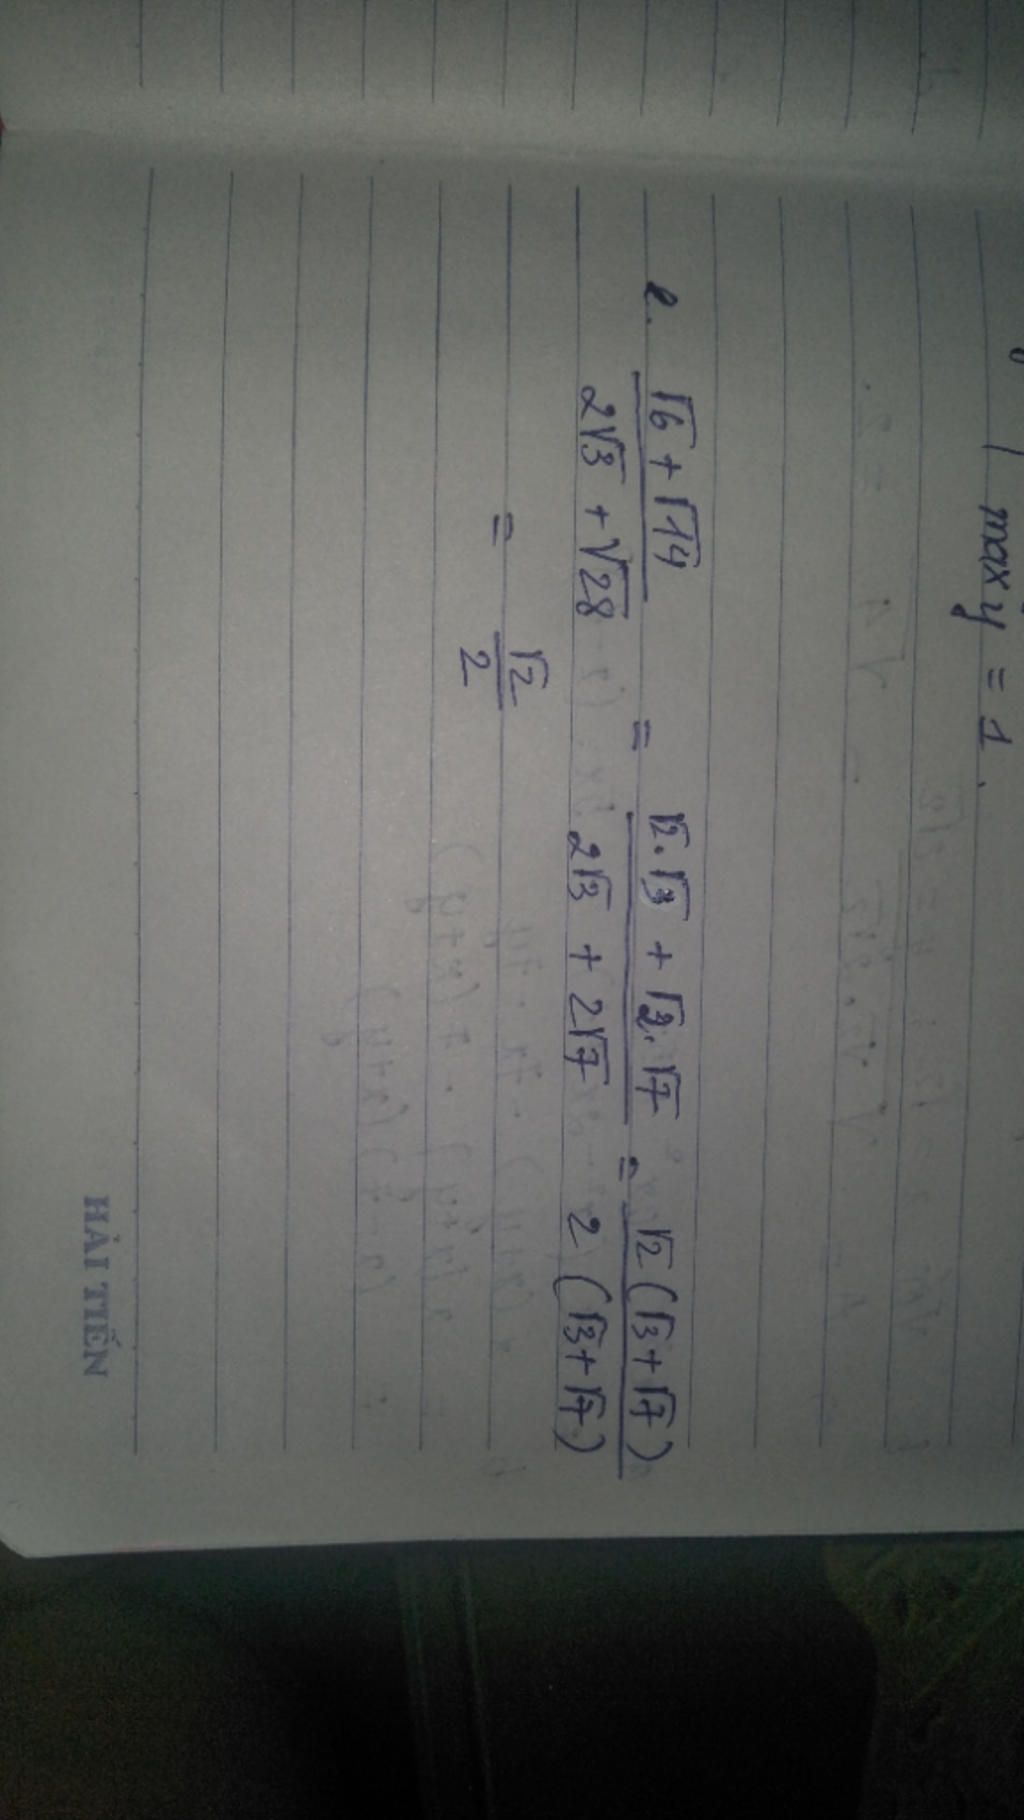 max y = 1.
e. \frac{√6 + √14}{2√3 + √28} = \frac{√2.√3 + √2.√7}{2√3 + 2√7} = \frac{√2(√3+√7)}{2(√3+√7)}
= \frac{√2}{2}
HẢI TIẾN